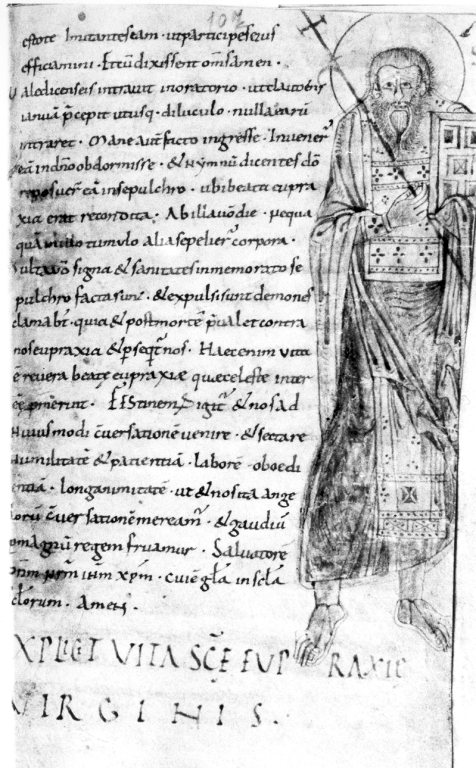 107
estote Imitantes eam · ut participes eius
efficiamini · Et cū dixissent om̄s amen ·
intravit in oratorio · ut clauderis
ianuā p̄cepit utusq; diluculo · nulla earū
intraret · Mane autē facto ingresse · Invener̄
eā in dn̄o obdormisse · & hymnū dicentes dō
reposuer̄ eā in sepulchro · ubi beata eupra
xia erat recondita · Ab illa v̄o die · neque
quā in illo tumulo alia sepelier̄ corpora ·
ulta v̄o signa & sanitates in memorato se
pulchro facta sunt · & expulsi sunt demones
clamabt̄ · quia & post mortē p̄valet contra
nos eupraxia & p̄seqt̄ nos · Haec enim vita
ē revera beate eupraxiae quae celeste inter
Festinem & nos ad
Huius modi c̄versationē venire · & sectare
Humilitatē & patientiā · laborē · oboedi
entiā · longanimitatē · ut & nos ita ange
lorū c̄versationē mereamr̄ · & gaudiū
magnū regem fruamur · Salvatorē
dn̄m nr̄m ihm xpm · cui ē gl̄a in scl̄a
scl̄orum · Amen ·
XPLICT VITA SC̄E EUP RAXIE
VIRGINIS ·